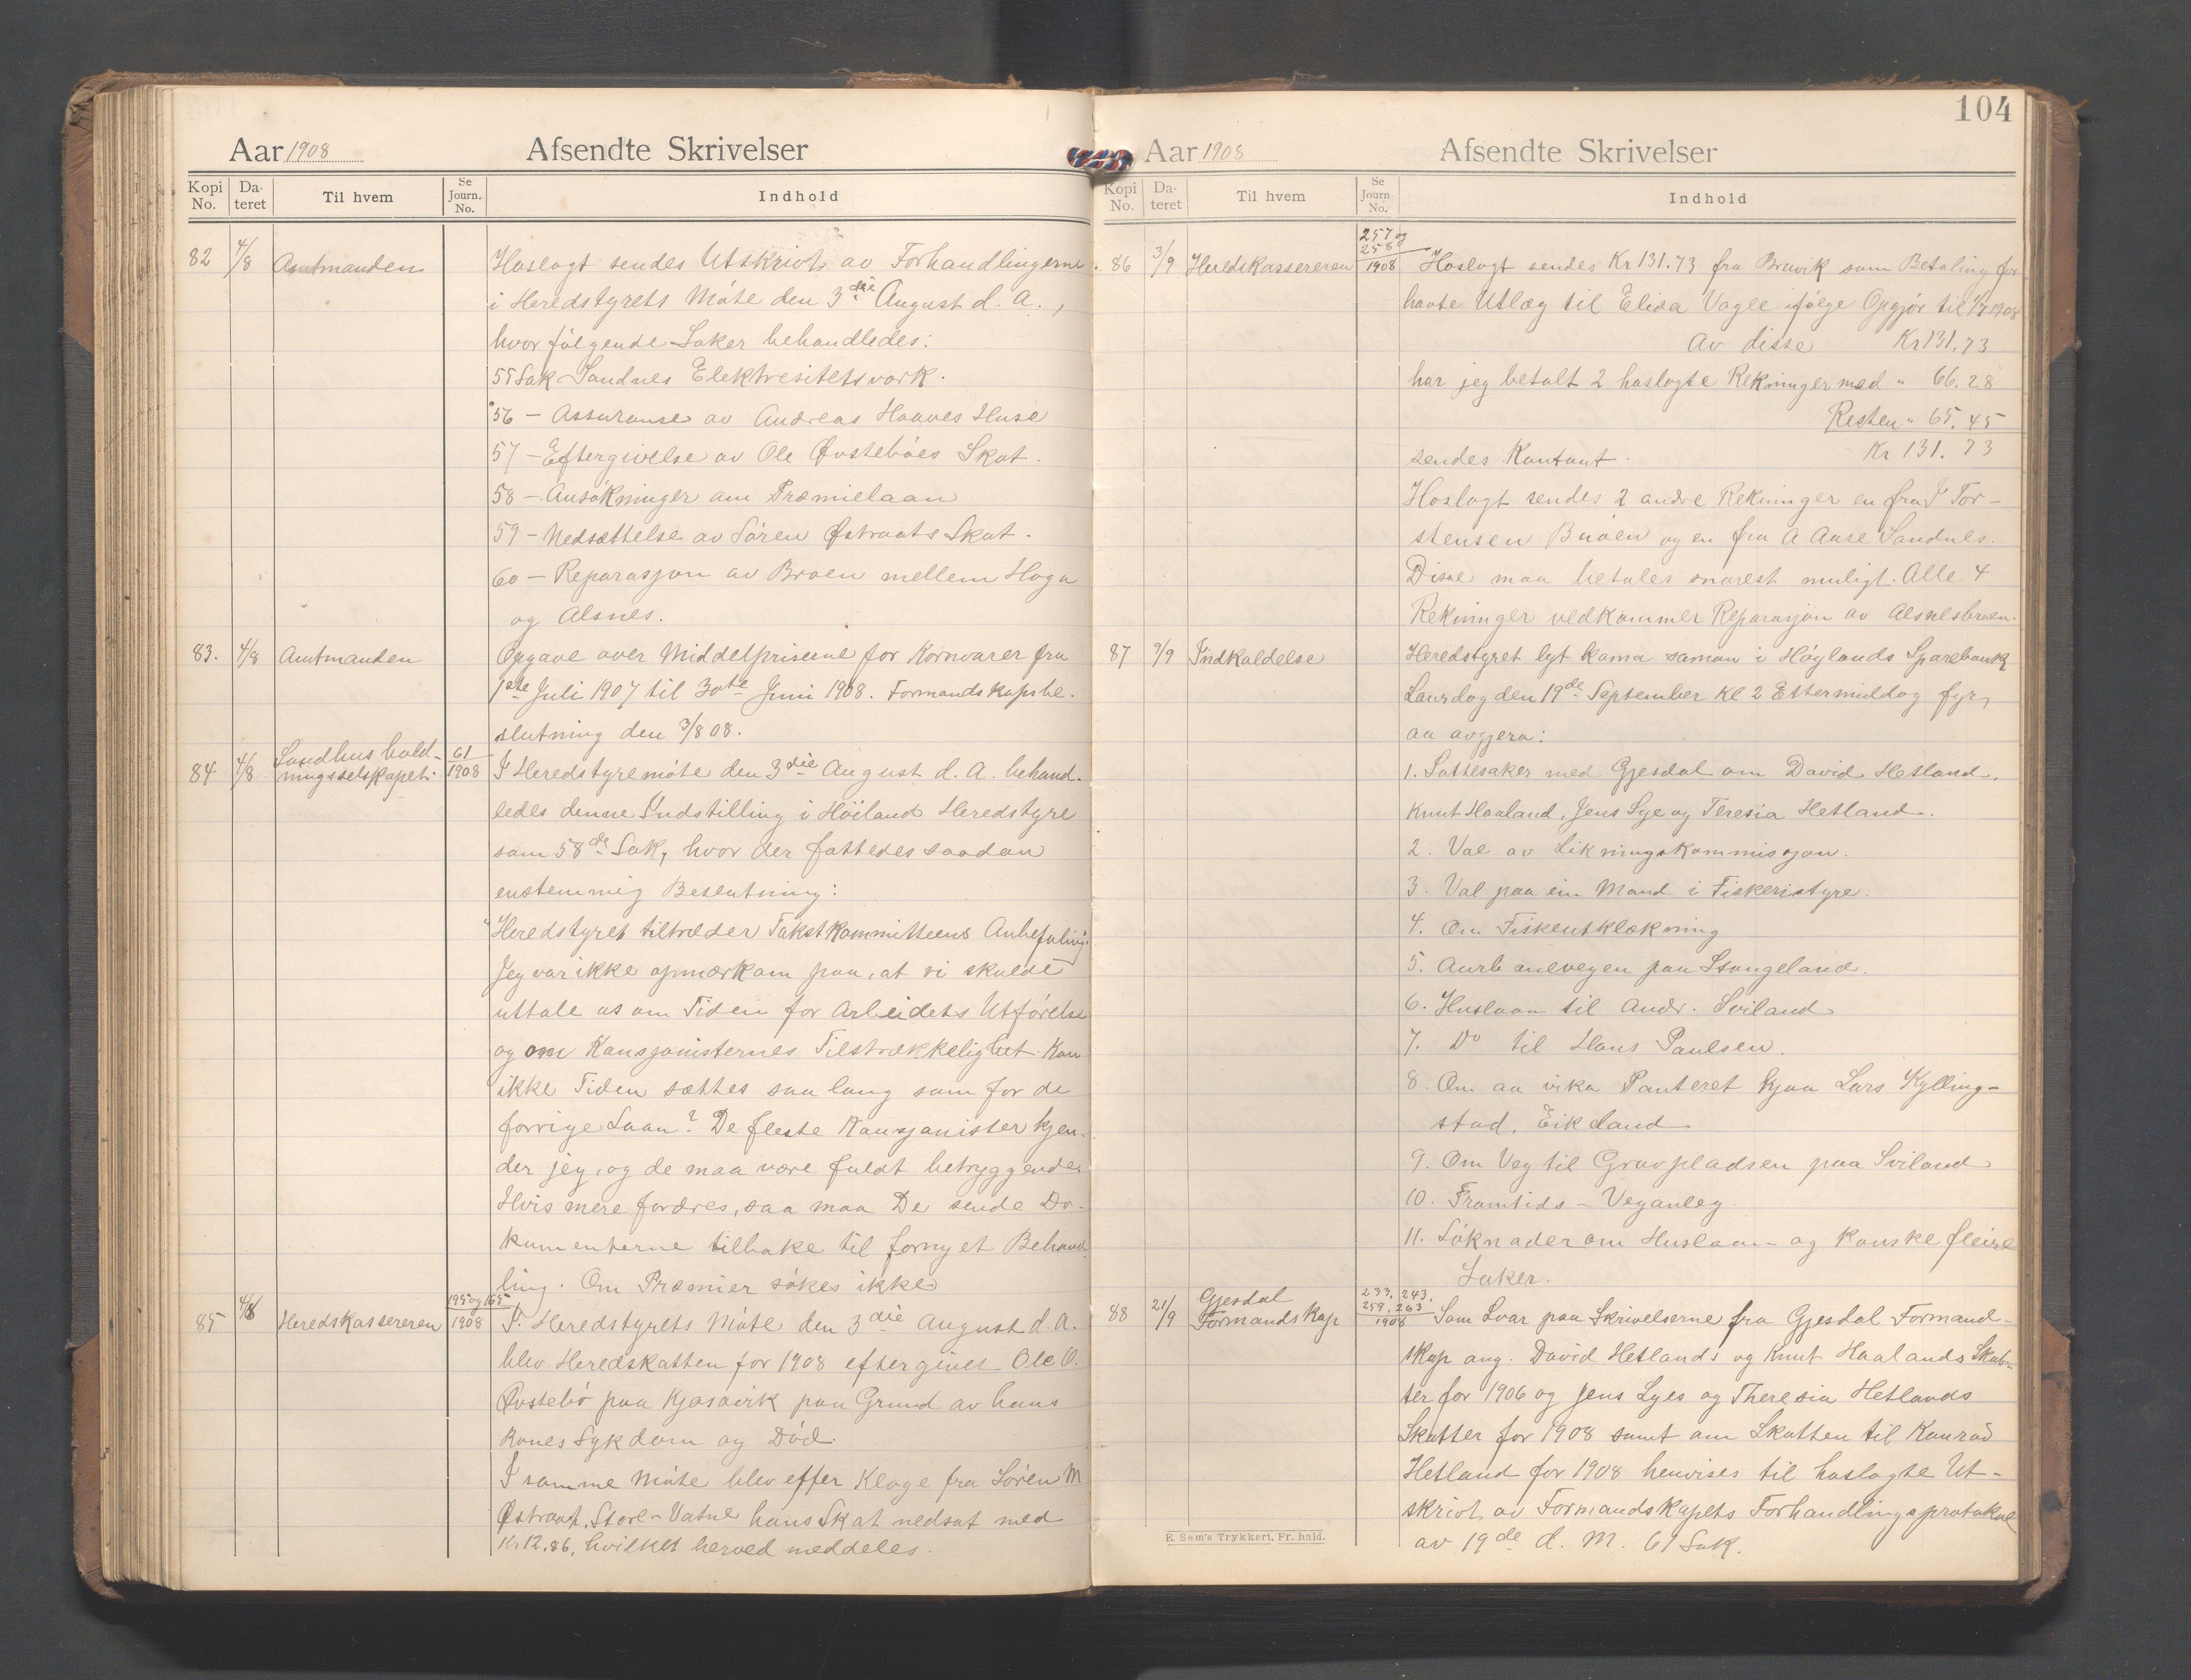 Aar 1908 Afsendte Skrivelser
Kopi No. Da-teret Til hvem Se Journ. No. Indhold
82 4/8 Amtmanden Hoslagt sendes Utskrivt av Forhandlingerne
i Heredstyrets Møte den 3die August d. A.,
hvor følgende Saker behandledes:
55 Sak Sandnes Elektresitetsvork.
56 – Assuranse av Andreas Haaves Huse
57 – Eftergivelse av Ole Øvstebøes Skat.
58 – Ansøkninger om Præmielaan
59 – Nedsættelse av Søren Østraats Skat.
60 – Reparasjon av Broen mellem Hoga
og Alsnes.
83. 4/8 Amtmanden Opgave over Middelpriserne for Kornvarer fra
1ste Juli 1907 til 30te Juni 1908. Formandskapsbe-
slutning den 3/8 08.
84 4/8 Landhushold-
ningsselskapet. 61/1908 I Heredstyremøte den 3die August d. A. behand-
ledes denne Indstilling i Høiland Heredstyre
som 58de Sak, hvor der fattedes saadan
enstemmig Beslutning:
"Heredstyret tiltræder Takstkommitteens Anbefaling".
Jeg var ikke opmerksam paa, at vi skulde
uttale os om Tiden for Arbeidets Utførelse
og om Kausjonisternes Tilstrækkelighet. Kan
ikke Tiden sættes saa lang som for de
forrige Laan? De fleste Kausjonister kjen-
der jeg, og de maa være fuldt betryggende.
Hvis mere fordres, saa maa De sende Do-
kumenterne tilbake til fornyet Behand-
ling. Om Præmier søkes ikke
85 4/8 Heredskassereren 195 og 165/1908 I Heredstyrets Møte den 3die August d. A.
blev Heredskatten for 1908 eftergivet Ole O.
Øvstebø paa Kjosavik paa Grund av hans
Kones Sykdom og Død.
I samme Møte blev efter Klage fra Søren M
Østraat, Store-Vatne hans Skat nedsat med
Kr 12.86, hvilket herved meddeles.
104
Aar 1908 Afsendte Skrivelser
Kopi No. Da-teret Til hvem Se Journ. No. Indhold
86 3/9 Heredskassereren 257 og 258/1908 Hoslagt sendes Kr 131.73 fra Bruvik som Betaling for
havte Utlæg til Elida Vagle ifølge Opgjør til 1/7 1908
Av disse Kr 131.73
har jeg betalt 2 hoslagte Rekninger med " 66.28
Resten " 65.45
sendes Kontant. Kr 131.73
Hoslagt sendes 2 andre Rekninger en fra T Tor-
stensen Buøen og en fra A Aase Sandnes.
Disse maa betales snarest muligt. Alle 4
Rekninger vedkommer Reparasjon av Alsnesbroen.
87 9/9 Indkaldelse Heredstyret lyt koma saman i Høylands Sparebank
Laurdag den 19de September Kl 2 Ettermiddag fyr
aa avgjera:
1. Skattesaker med Gjesdal om David Hetland,
Knut Haaland, Jens Lye og Teresia Hetland.
2. Val av Likningskommissjon.
3. Val paa ein Mand i Fiskeristyre.
4. Om Fiskeutklækning
5. Aurbanevegen paa Stangeland.
6. Huslaan til Andr. Sviland
7. Do til Hans Paulsen.
8. Om aa vika Panteret hjaa Lars Kylling-
stad, Eikeland
9. Om Veg til Gravpladsen paa Sviland
10. Framtids-Veganleg.
11. Søknader om Huslaan og kanske fleire
Saker.
88 21/9 Gjesdal
Formandskap 233, 243, 259, 263/1908 Som Svar paa Skrivelserne fra Gjesdal Formand-
skap ang. David Hetlands og Knut Haalands Skat-
ter for 1906 og Jens Lyes og Theresia Hetlands
Skatter for 1908 samt om Skatten til Konrad
Hetland for 1908 henvises til hoslagte Ut-
skrivt av Formandskapets Forhandlingsprotokol
av 19de d. M. 61 Sak.
E. Sem's Trykkeri, Fr. hald.